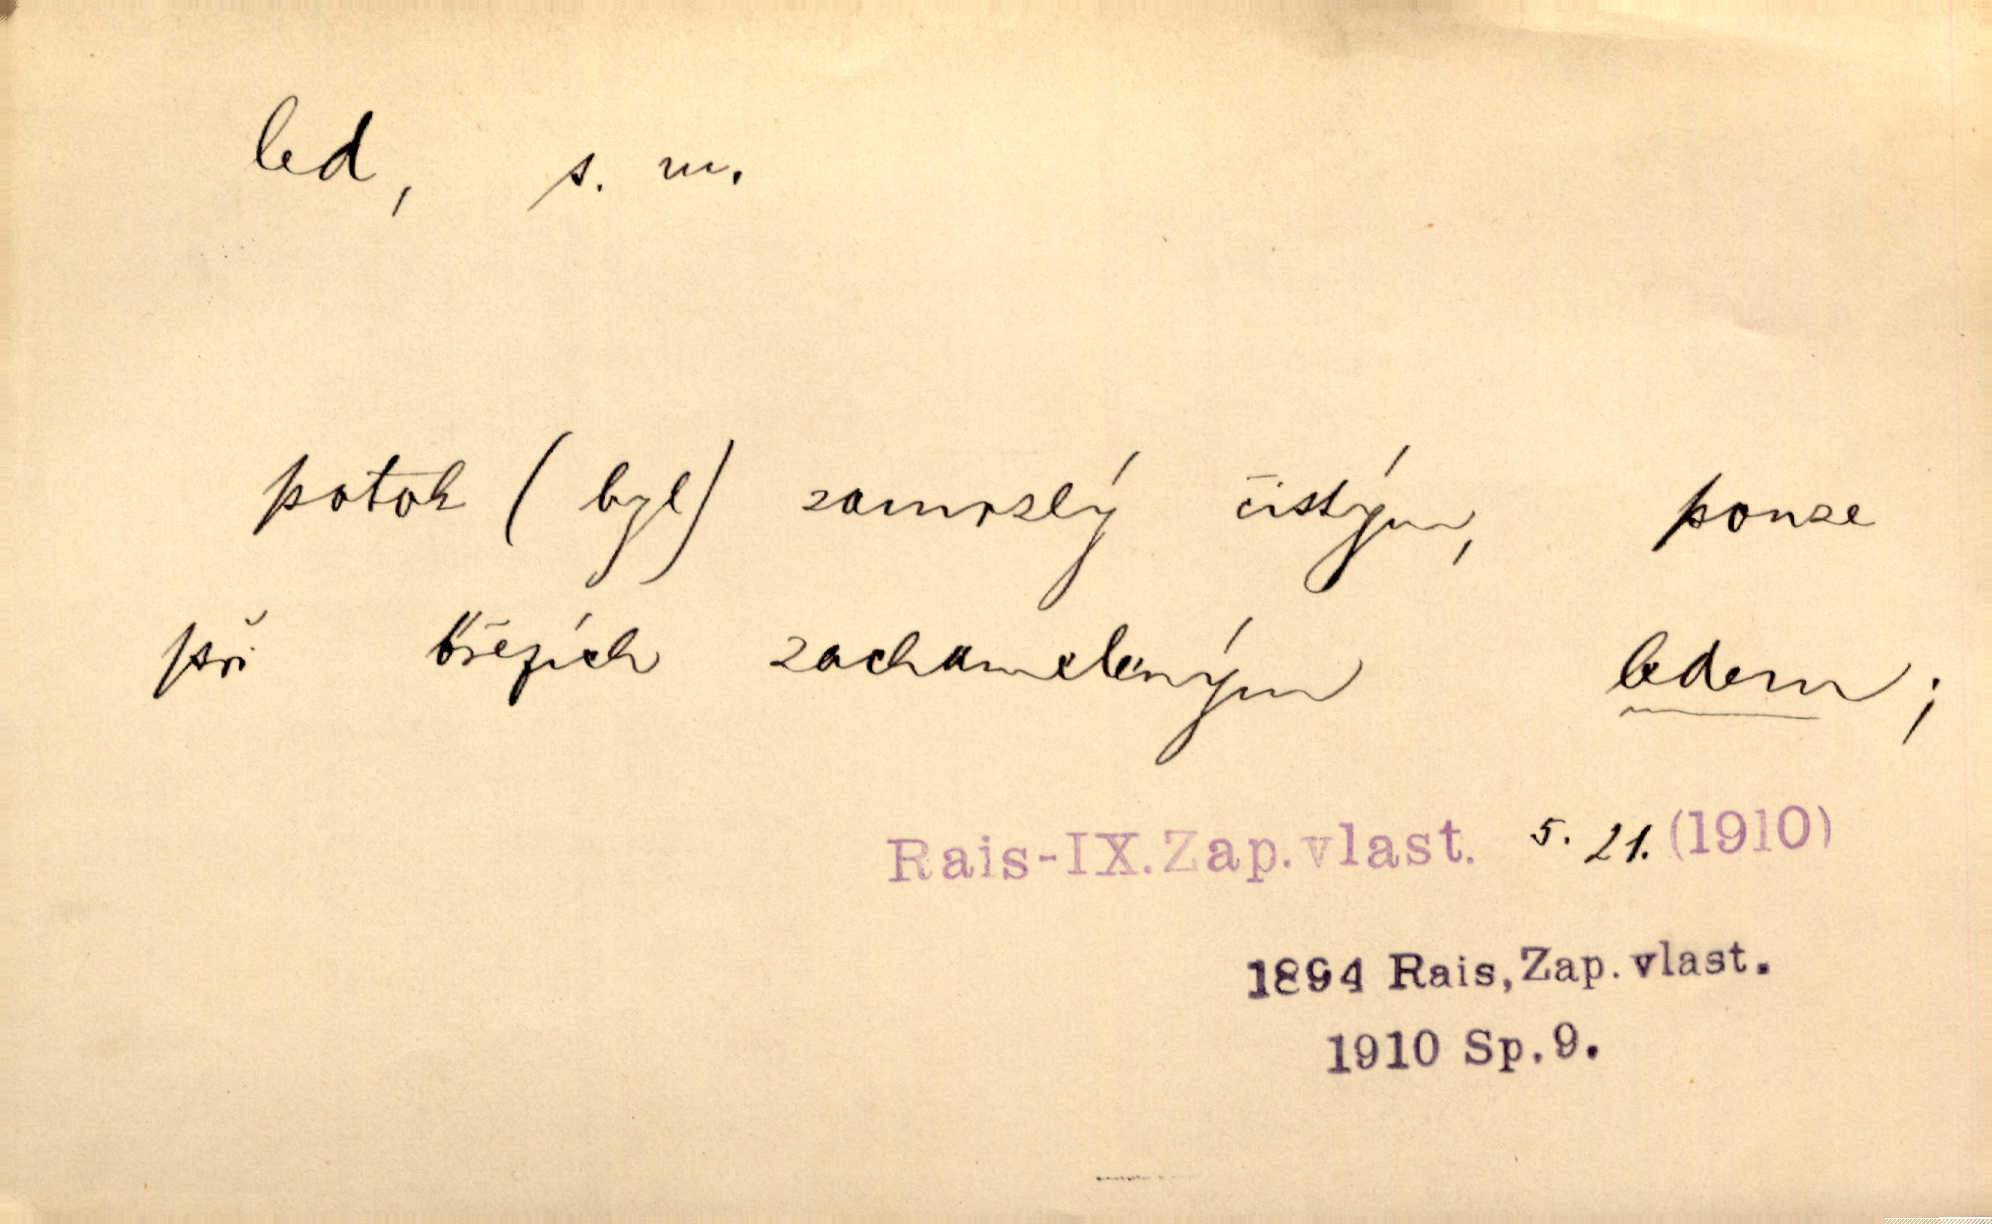 led, s. m.
potok (byl) zamrzlý čistým, pouze
při břězích zachumeleným ledem;
Rais-IX.Zap.vlast. 5. 21. (1910)
1894 Rais,Zap.vlast.
1910 Sp.9.